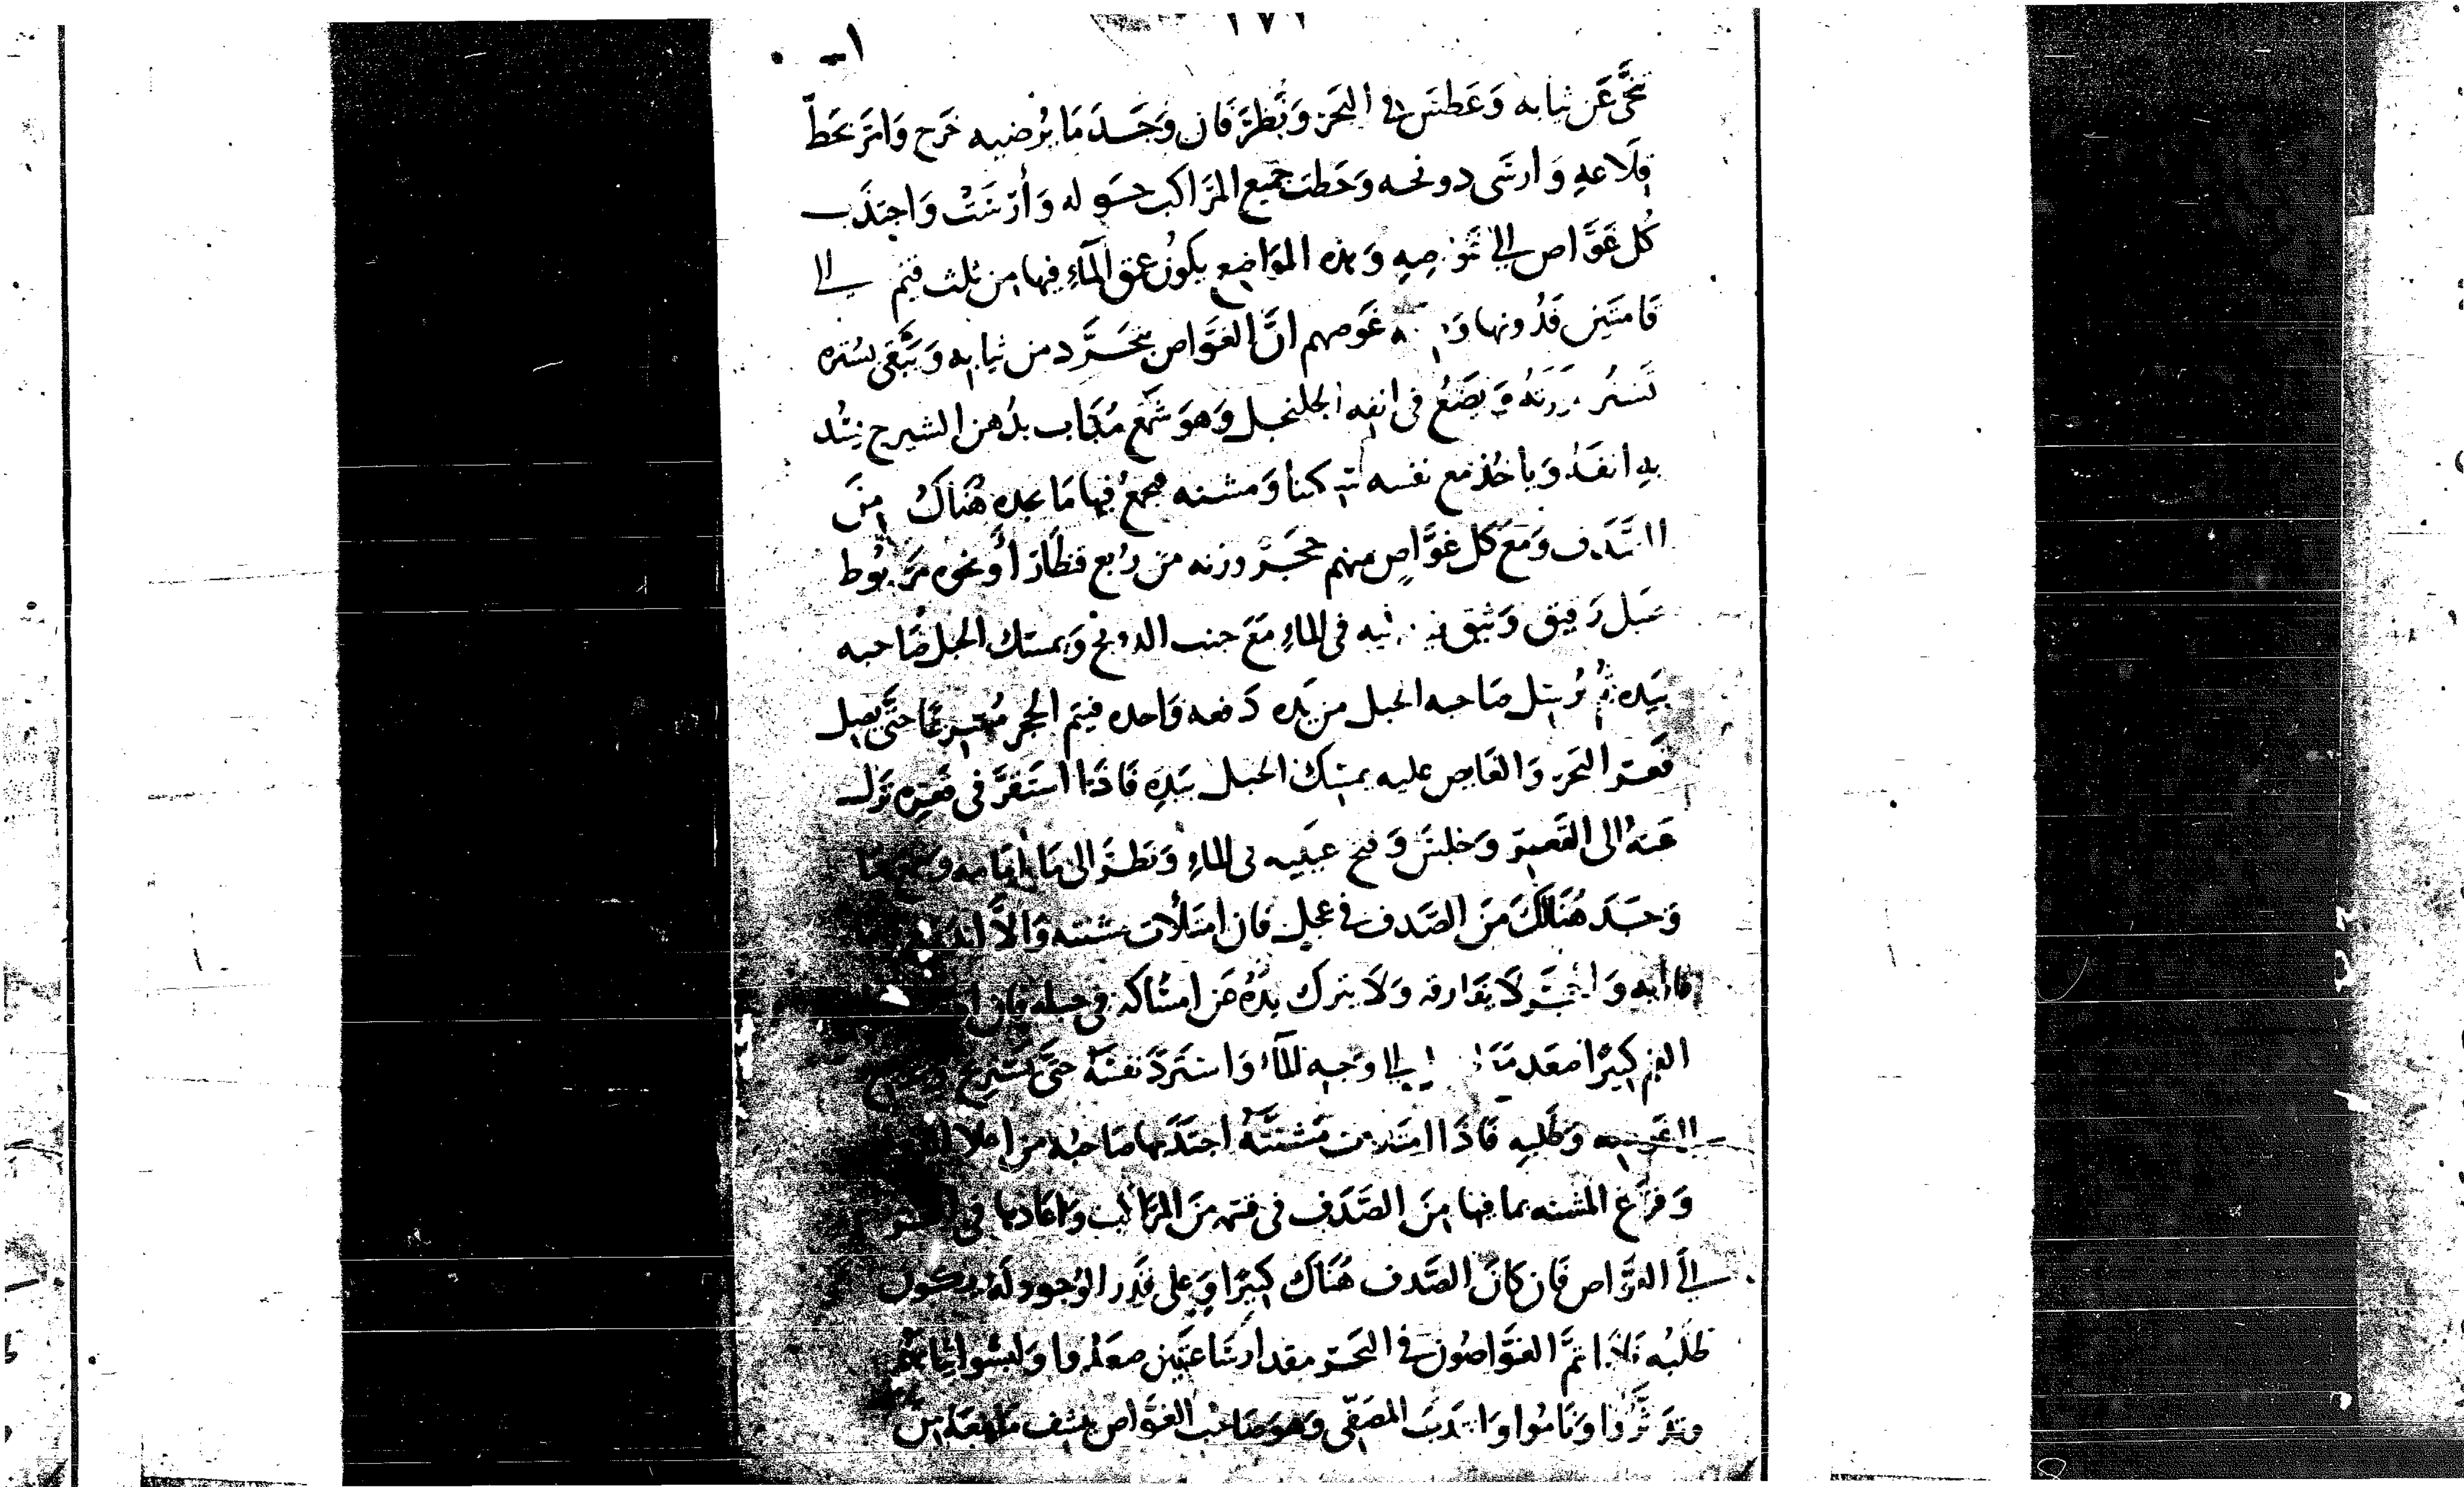 ١٧١
تخَّى عَن ثيابه وَغَطسَ فى البَحَر وَنَظرَ فَان وَجَدَ مَا يُرضيه خَرج وَامَرَ بحَطّ
قلَاعهِ وَارسَى دونجه وَحَطت جميع المرَاكب حَوله وَأرْسَتْ وَاجتذَب
كُل غوَّاص الى غَوْصِهِ وَهذه الموَاضِع يكونُ عمق المَآءِ فيها مِن ثلث قيَم الى
قَامتَين فَدُونها غَوصهم انَّ الغوَّاص يتجَرَّد من ثيابه وَيَبْقى بسُتره
تستُر وَيَضَعُ فى انفه الجلنجل وَهوَ شَمْع مُذَاب بدُهن الشيرج يسُد
بهِ انفَهُ وَيَاخُذ مع نفسه سكينا وَمشنه يجمعُ فيها مَا يجده هُنَاكَ مِنَ
الصَّدَف وَمَعَ كل غوَّاصٍ منهم حَجَرْ وزنه من رُبع قنطَار أَوْ نحوه مَربُوط
بحَبل رَقيق وَثيق فى الماءِ مَعَ جنب الدونج وَيمسك الحبل صَاحبه
بيَده ثُمَّ يُرسِل صَاحبه الحبل من يَده دَفعه وَاحده فيتم الحجر مُسرعًا حتَّى يصِل
قَعرَ البَحر وَالغَايص عليه يمسِك الحبل بيَدِه فَاذَا استَقرَّ فى قعرِه نَزل
عَنهُ الى القَعر وَجلسَ وَفتح عينَيه فى الماءِ وَنظرَ الى مَا امَامه
وَجَدَ هُنَالكَ مَن الصَّدف فى عجل فان امتَلأت مشنته وَالاَّ
وَالحجَر لَا يفَارقه وَلَا يترك يَدَهُ مَن امسَاكه فى حبله فان
الغم كبيرًا صعَد الى وَجه المآء وَاستَردَّ نفسَهُ حَتَّى يَستريح
الغَوص وَطلبهِ فَاذَا امتَلات مَشنتَهُ اجتذَبها صَاحبُه من اعلا
وَفرَّغ المشنه بما فيها مِنَ الصَّدَف فى قسمه مِنَ المرَاكب وَاعَادها فى
الى الغوَّاص فَان كَانَ الصَّدف هُنَاك كبيرًا وَعلى قَدَر الوُجود لَه يكون
طلبُه فَاذَا تمَّ الغوَّاصُون فى البَحَر مقدار سَاعَتَين صعَدُوا وَلَبسُوا ثيَابهُم
وتدَثَّرُوا وَنَامُوا وَانتدَبَ المصَفّى وَهوَ صَاحب الغوَّاص فشف مَا معَه مِن